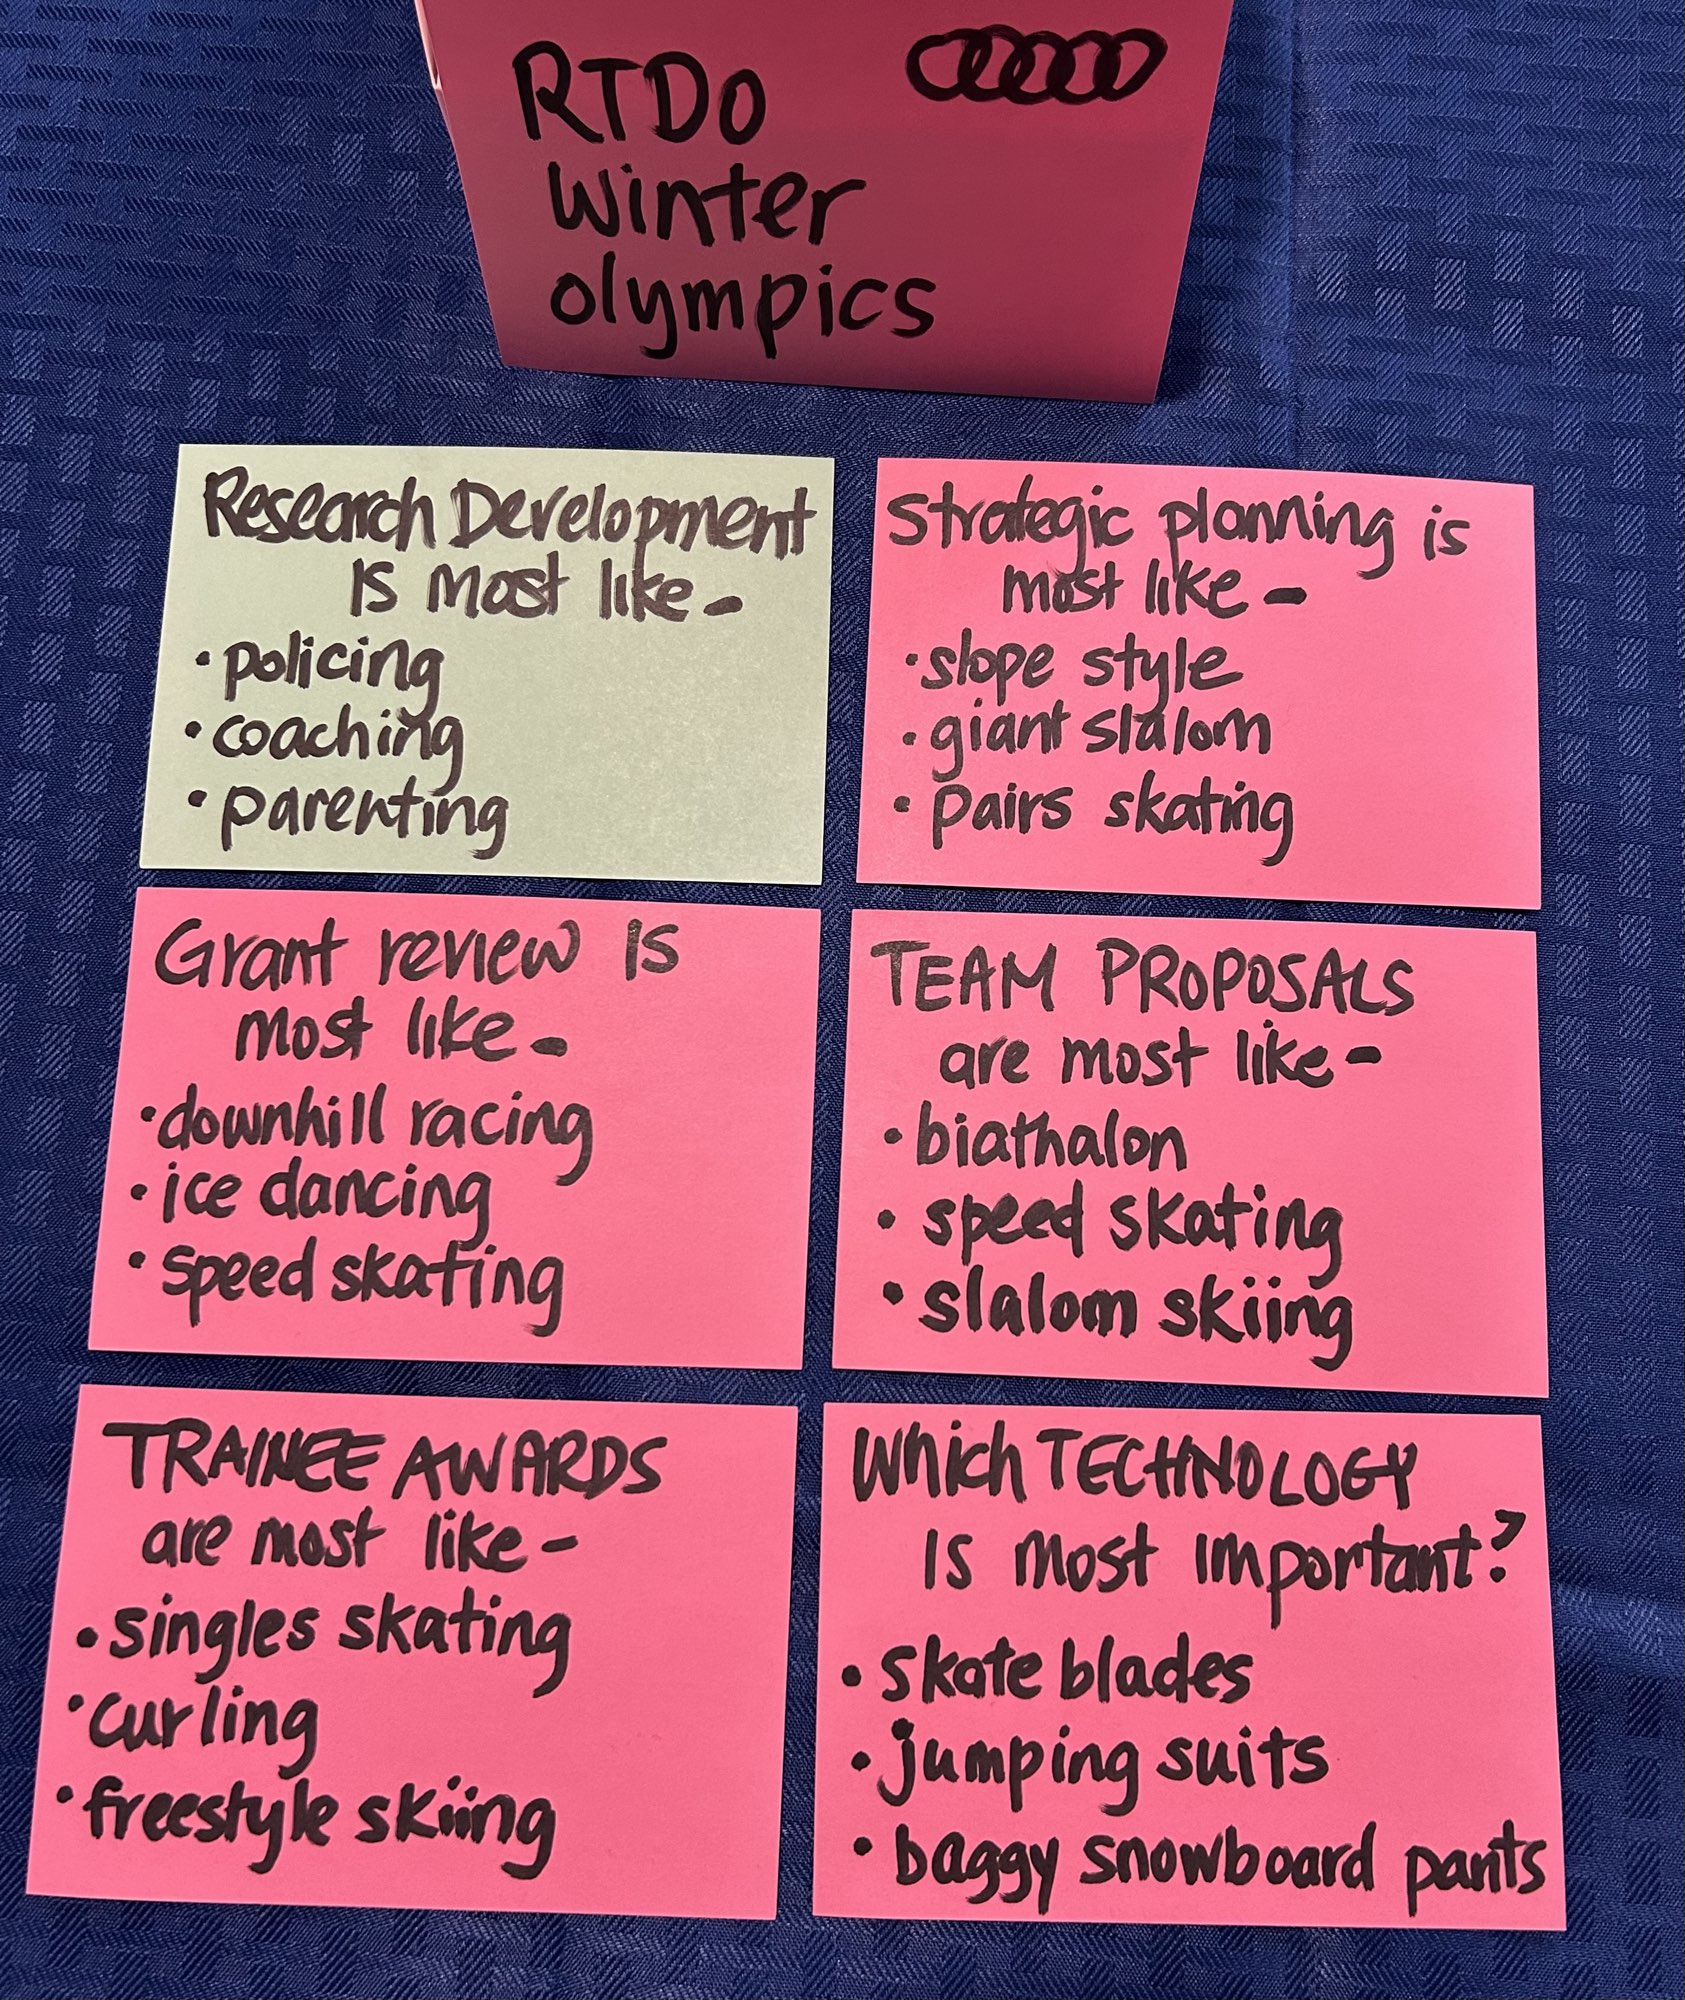 RTDo
Winter
olympics
Research Development
is most like -
• policing
• coaching
• parenting
Strategic planning is
most like -
• slope style
• giant slalom
• pairs skating
Grant review is
most like -
• downhill racing
• ice dancing
• speed skating
TEAM PROPOSALS
are most like -
• biathalon
• speed skating
• slalom skiing
TRAINEE AWARDS
are most like -
• singles skating
• curling
• freestyle skiing
Which TECHNOLOGY
is most important?
• skate blades
• jumping suits
• baggy snowboard pants